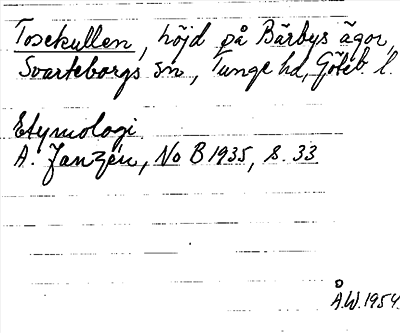 Tosekullen, höjd på Bärbys ägor,
Svarteborgs sn, Tunge hd, Göteb. l.
Etymologi
A. Janzén, No B 1935, s. 33
Å.W. 1954.